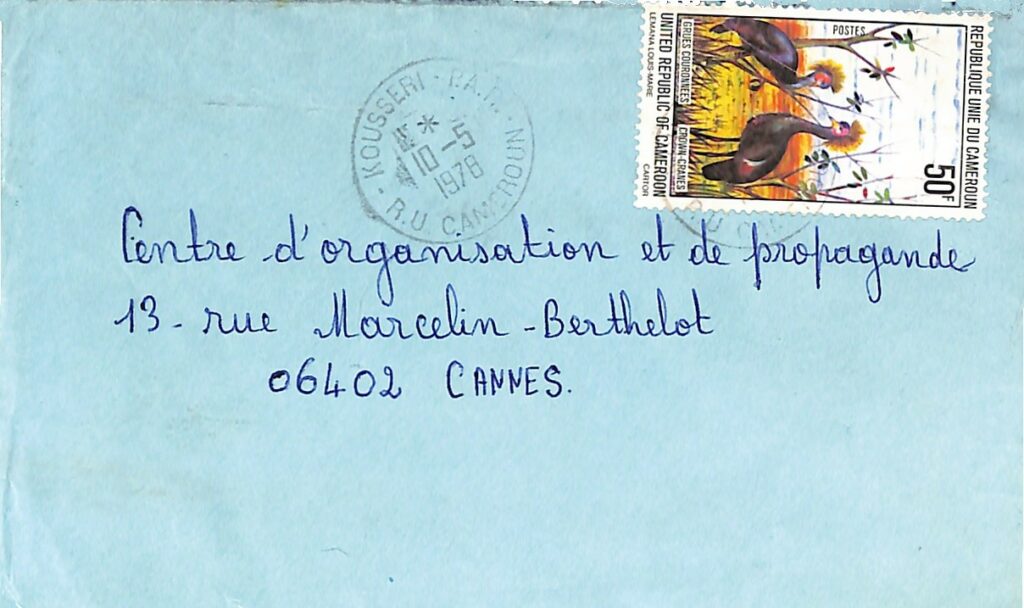 REPUBLIQUE UNIE DU CAMEROUN
50F
POSTES
GRUES COURONNÉES CROWN-CRANES
UNITED REPUBLIC OF CAMEROON
LEMANA LOUIS-MARIE CARTOR
- KOUSSERI - P.A.R. -
*
10-5
1978
R.U CAMEROUN
R.U
Centre d'organisation et de propagande
13 - rue Marcelin - Berthelot
06402 CANNES.